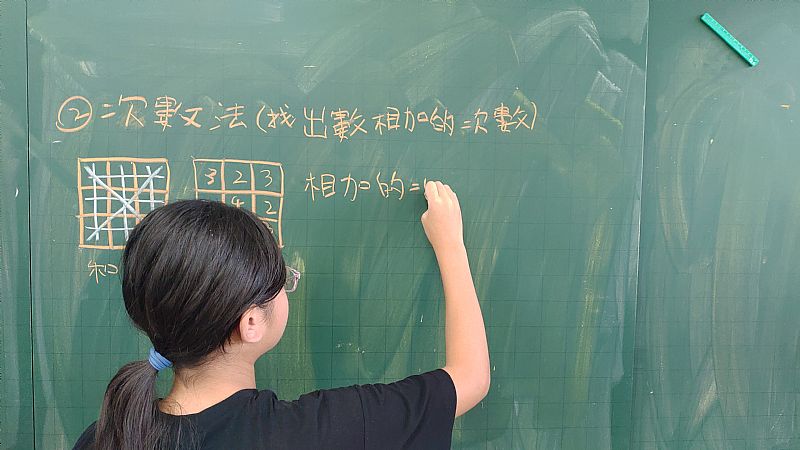 ②次數文法(找出數相加的次數)
3 2 3
4 2
相加的
和